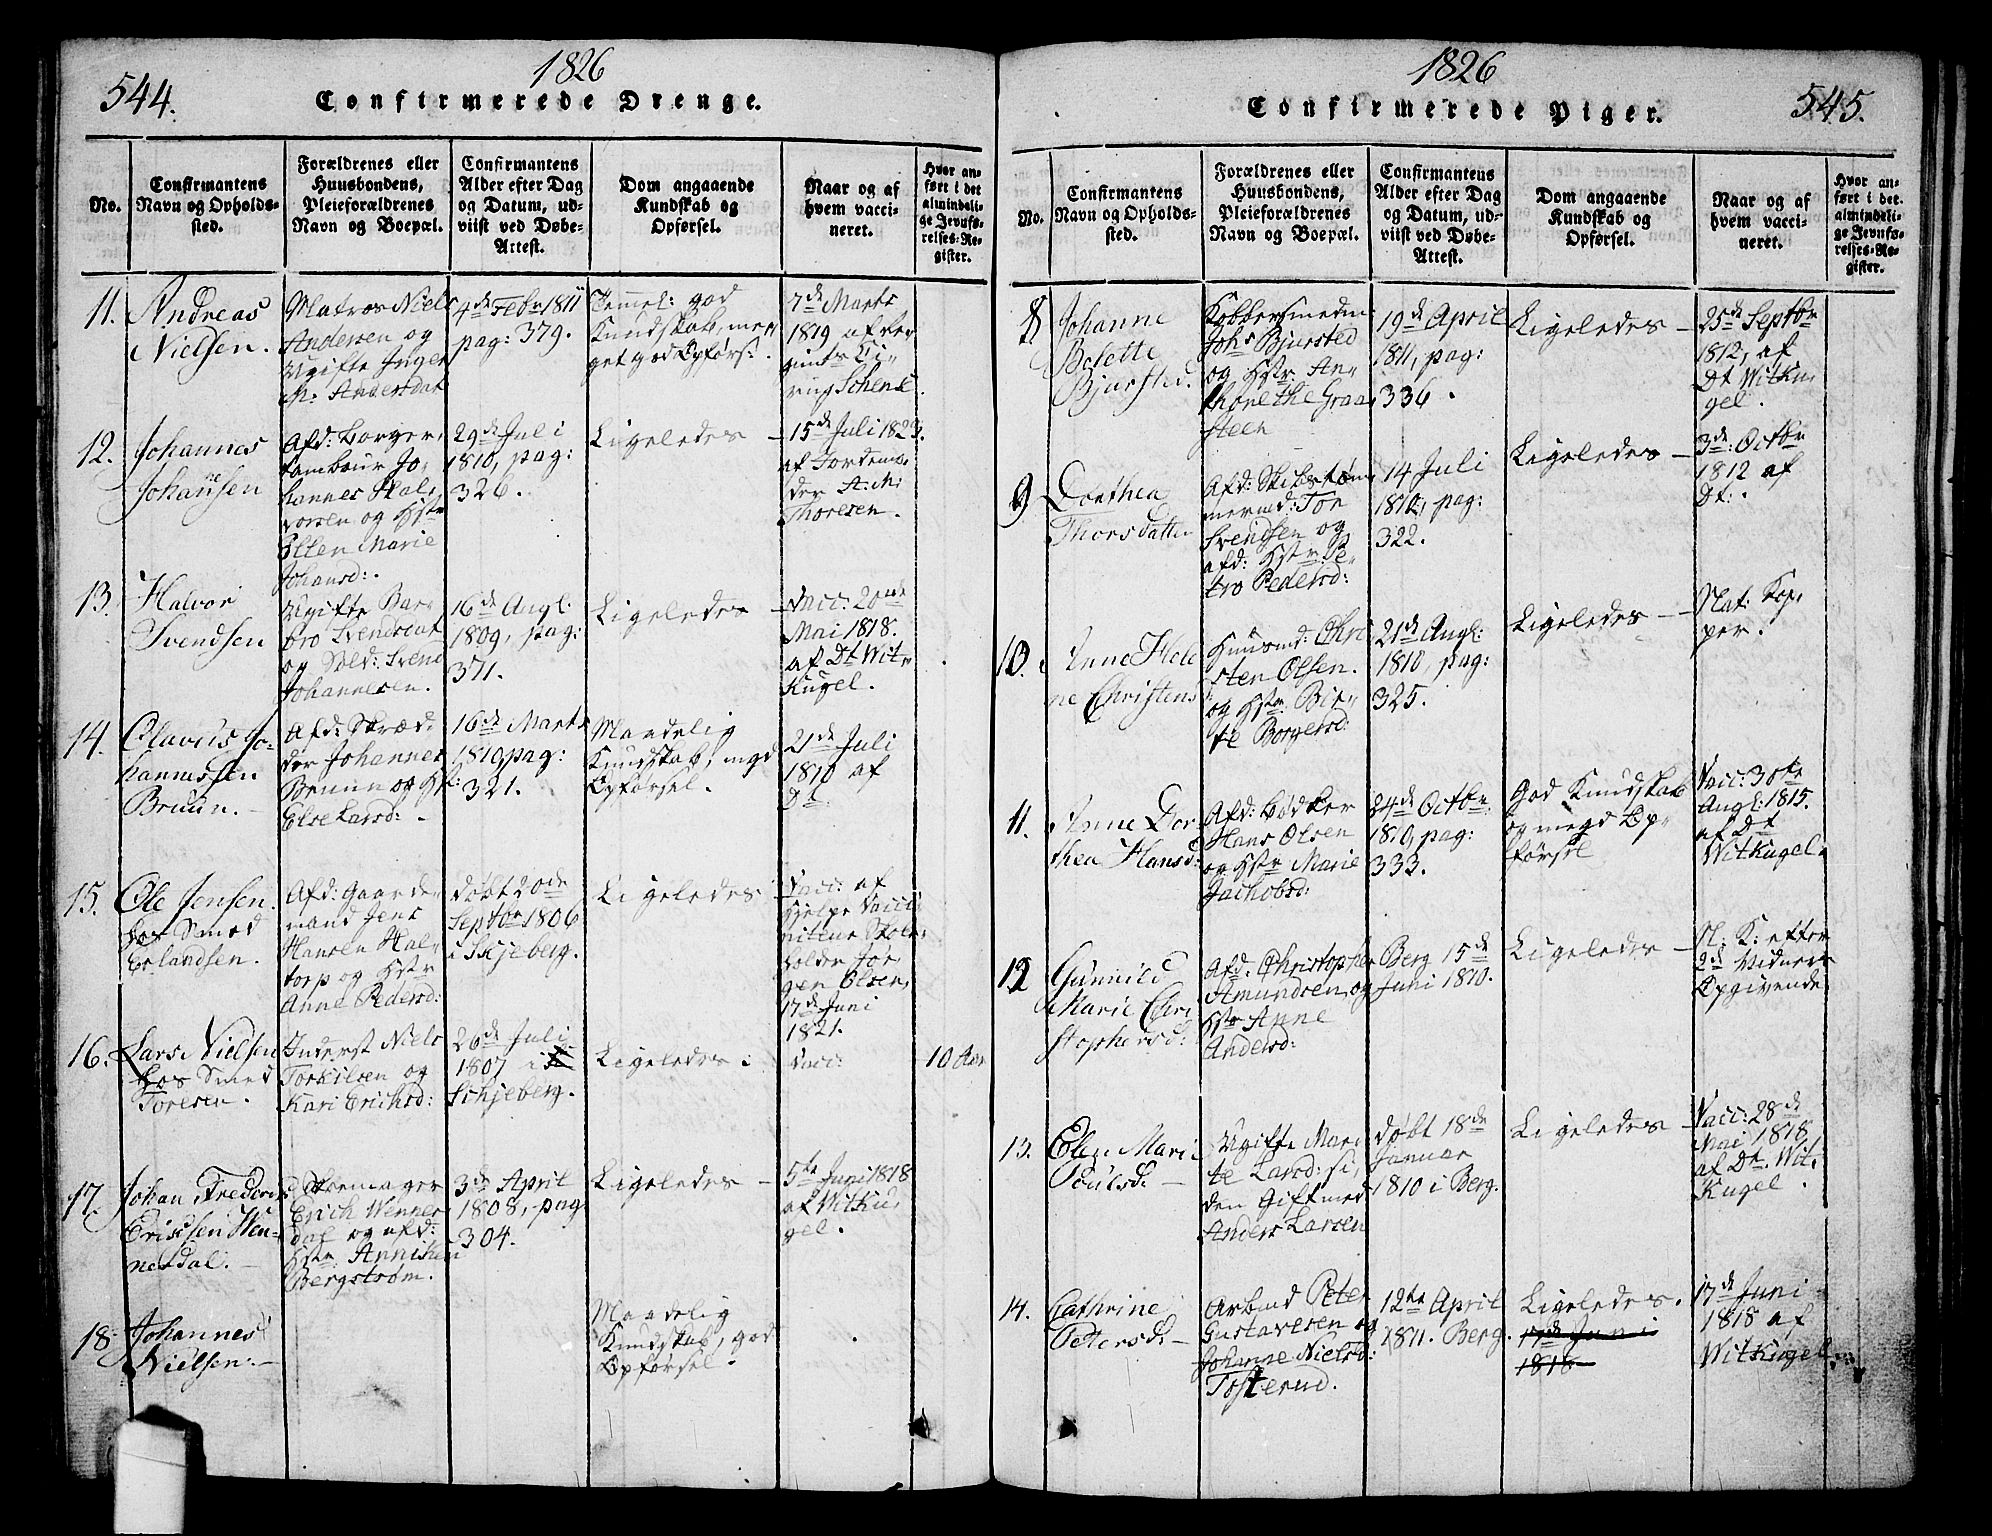 544.
1826
Confirmerede Drenge.
No.
Confirmantens
Navn og Opholds-
sted.
Forældrenes eller
Huusbondens,
Pleieforældrenes
Navn og Boepæl.
Confirmantens
Alder efter Dag
og Datum, ud-
viist ved Døbe-
Attest.
Dom angaaende
Kundskab og
Opførsel.
Naar og af
hvem vacci-
neret.
Hvor an-
ført i det
almindeli-
ge Jevnfø-
relses-Re-
gister.
11.
Andreas
Nielsen.
Matros Niels
Andersen og
Ugifte Inger
M: Andersdat
4de Febr 1811
pag: 379.
Temmel: god
Kundskab, me-
get god Opførs:.
7de Marts
1819 af
12.
Johannes
Johansen
Afd: Borger,
tambour Jo-
hannes Hal-
vorsen og Hstr
Ellen Marie
Johansd:.
29de Juli
1810, pag:
326.
Ligeledes —
15de Juli
af Jordemo-
der A: M:
Thoresen.
13.
Halvor
Svendsen
Ugifte Bar-
bro Svendsdat
og Sold: Svend
Johannesen.
16de Augl:
1809, pag:
371.
Ligeledes —
Vacc: 20de
Mai 1818.
af Dt Wit-
Kugel.
14.
Olavus Jo-
hannessen
Bruun. —
Afd: Skræd-
der Johannes
Bruun og Hst:
Else Larsd: .
16de Marts
1810, pag:
321.
Maadelig
Kundskab, megd
Opførsel.
21de Juli
1810 af
Dt
15.
Ole Jensen.
hos Smed
Erlandsen.
Afd: Gaard-
mand Jens
Hansen Hal-
torp og Hstr
Anne Pedersd:
døbt 20de
Septbr 1806
i Skjeberg.
Ligeledes —
Vacc: af
Hjelpe Vacci
niteur Skole-
holder Jør-
gen Olsen,
17de Juni
1821.
16.
Lars Nielsen
hos Smed
Toresen.
Inderst Niels
Torkilsen og
Kari Erichsd:
26de Juli
1807 i
Schjeberg.
Ligeledes
Vacc:
10 Aar
17.
Johan Frederik
Erichsen Wen-
nesdal. —
Skomager
Erich Wennes-
dal og afd:
Hstr Anniken
Bergstrøm.
3de April
1808, pag
304.
Ligeledes —
5te Juni 1818
af Witku,
gel.
18:
Johannes
Nielsen: —
Maadelig
Kundskab, god
Opførsel.
1826
Confirmerede Piger.
545.
No.
Confirmantens
Navn og Opholds-
sted.
Forældrenes eller
Huusbondens,
Pleieforældrenes
Navn og Boepæl.
Confirmantens
Alder efter Dag
og Datum, ud-
viist ved Døbe-
Attest.
Dom angaaende
Kundskab og
Opførsel.
Naar og af
hvem vacci-
neret.
Hvor an-
ført i det
almindeli-
ge Jevnfø-
relses-Re-
gister.
8
Johanne
Bolette
Bjursted.
Kobbersmedm
Johs Bjursted
og Hstr An-
thonethe Graa
steen
19de April
1811, pag:
336.
Ligeledes —
25de Septbr
1812, af
Dt Witku,
gel.
9
Dorthea
Thorsdatter
Afd: Skibstøm-
mermd: Tor
Svendsen og
afd: Hstr: Pe-
tro Pedersd:
14 Juli
1810, pag:
322.
Ligeledes —
3de: Octbr
1812 af
Dt: .
10.
Anne Hele
ne Christens
Huusmd: Chri
sten Olsen.
og Hstr Bir-
te Borgersd:
21de Augl:
1810, pag:
325.
Ligeledes —
Nat: Kop,
per.
11.
Anne Dor
thea Hansd:
Afd: Bødker
Hans Olsen
og Hstr Marie
Jachobsd:
24de Octbr
1810, pag:
333.
God Kundskab
og megd Op-
førsel
Vacc: 30te
Augl: 1815.
af Dt
Witkugel.
12
Gunnild
Marie Chri
stophersd:
Afd: Christopher
Amundsen, og
Hstr Anne
Andersd:
Berg 15de
Juni 1810.
Ligeledes —
N: K: efter
2de Vidners
Opgivende
13.
Elen Marie
Poulsd: —
Ugifte Mari
te Larsd: si,
den Gift med
Anders Larsen
døbt 18de
Januar
1810 i Berg.
Ligeledes —
Vacc: 28de
Mai 1818
af Dt. Wit,
Kugel.
14.
Cathrine
Petersd: —
Arbmd Peter
Gustavesen og
Johanne Nielsd:
Tosterud.
12te April
1811. Berg.
Ligeledes.
17de Juni
1818
17de Juni
1818 af
Witkugel.